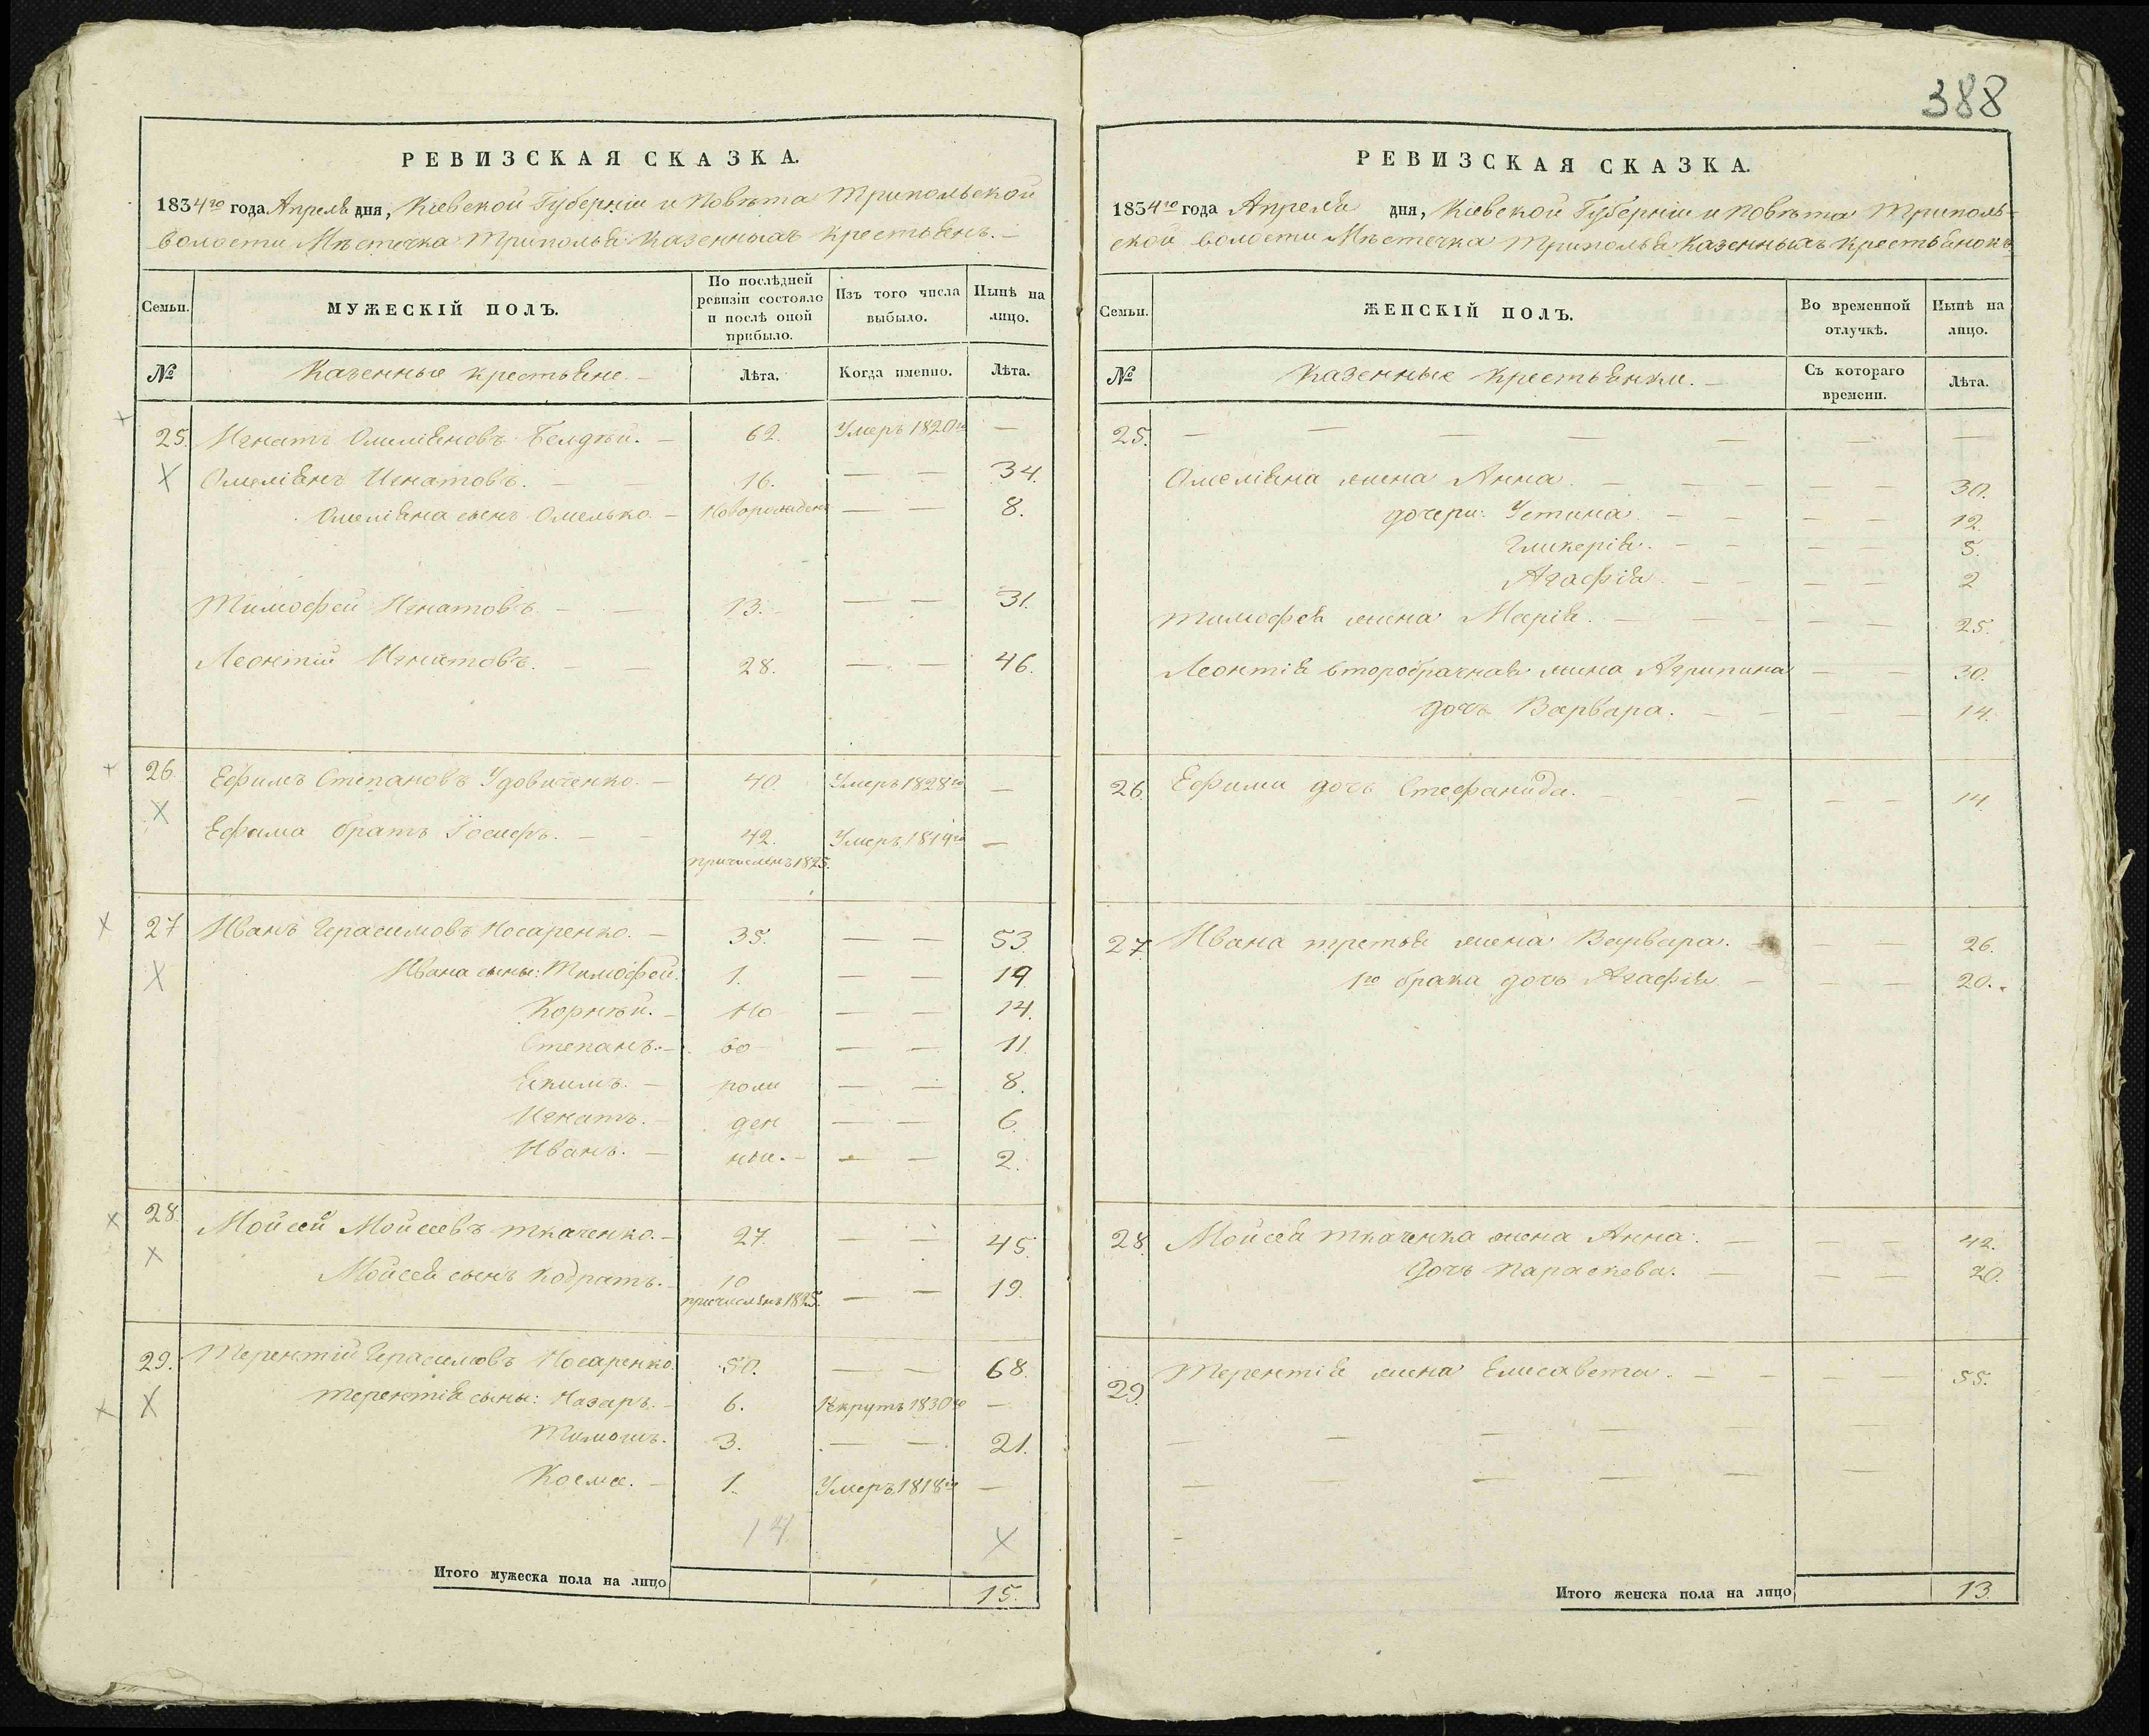 388
РЕВИЗСКАЯ СКАЗКА.
1834го года Апреля дня, Кіевской Губерніи и Повѣта Трипольской
волости Мѣстечка Триполья Казенныхъ крестьянъ. —
Семьи.
МУЖЕСКІЙ ПОЛЪ.
По послѣдней ревизіи состояло и послѣ оной прибыло.
Изъ того числа выбыло.
Нынѣ на лицо.
№
Казенные крестьяне. —
Лѣта.
Когда именно.
Лѣта.
25. Игнатъ Омеліяновъ — 62. Умеръ 1820го —
Омеліянъ Игнатовъ. — — 16. — — 34.
Омеліяна сынъ Омелько. — Новорожденъ — — 8.
Тимофей Игнатовъ — — 13. — — 31.
Леонтій Игнатовъ. — — 28. — — 46.
26. Ефимъ Степановъ Удовиченко. — 40. Умеръ 1828го —
Ефима братъ Іосифъ. — — 42. Умеръ 1819го —
причисленъ 1825.
27 Иванъ Герасимовъ Носаренко. — 35. — — 53
Ивана сыны: Тимофей. 1. — — 19
Корнѣй. — Но — — 14.
Степанъ. — во — — 11.
Екимъ. — рож — — 8.
Игнатъ. — ден — — 6.
Иванъ. — ные. — — — 2.
28. Мойсей Мойсеевъ Ткаченко. — 27. — — 45.
Мойсея сынъ Кодратъ. — 10 — — 19.
причисленъ 1825.
29. Терентій Герасимовъ Носаренко. 50. — — 68.
Терентія сыны: Назаръ. — 6. Рекрутъ 1830го —
Тимошъ. 3. — — 21.
Косма. — 1. Умеръ 1818го —
14
Итого мужеска пола на лицо 15.
РЕВИЗСКАЯ СКАЗКА.
1834го года Апреля дня, Кіевской Губерніи и Повѣта Триполь-
ской волости Мѣстечка Триполья Казенныхъ крестьянокъ
Семьи.
ЖЕНСКІЙ ПОЛЪ.
Во временной отлучкѣ.
Нынѣ на лицо.
№
Казенные крестьянки. —
Съ котораго времени.
Лѣта.
25. — — — — — — —
Омеліяна жена Анна. — — — — — 30.
дочери: Устина. — — — — 12.
Гликерія. — — — — 5.
Агафія. — — — — 2
Тимофея жена Марія. — — — — — 25.
Леонтія второбрачная жена Агрипина — — 30.
дочь Варвара. — — — — 14.
26. Ефима дочь Стефанида. — — — — 14.
27 Ивана третья жена Варвара. — — 26.
1го брака дочь Агафія — — — 20.
28. Мойсея Ткаченка жена Анна. — — — 42.
Дочь Параскева. — — — 20.
29. Терентія жена Елисавета. — — — — 55.
— — — — — —
— — — — —
Итого женска пола на лицо 13